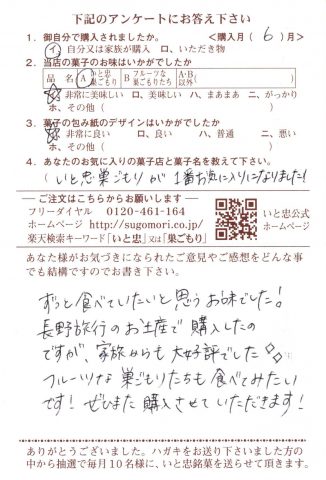 下記のアンケートにお答え下さい
1. 御自分で購入されましたか。 <購入月( 6 )月>
イ、自分又は家族が購入 ロ、いただき物
2. 当店の菓子のお味はいかがでしたか
品 名 A いと忠巣ごもり B フルーツな巣ごもりたち A・B以外( )
イ、非常に美味しい ロ、美味しい ハ、まあまあ ニ、がっかり
ホ、その他( )
3. 菓子の包み紙のデザインはいかがでしたか
イ、非常に良い ロ、良い ハ、普通 ニ、悪い
ホ、その他( )
4. あなたのお気に入りの菓子店と菓子名を教えて下さい。
(いと忠巣ごもりが1番お気に入りになりました!
ご注文はこちらからお願いします
フリーダイヤル 0120-461-164
ホームページ http://sugomori.co.jp/
楽天検索キーワード「いと忠」又は「巣ごもり」
いと忠公式
ホームページ
あなた様がお気づきになられたご意見やご感想をどんな事
でも結構ですのでお書き下さい。
ずっと食べていたいと思うお味でした!
長野旅行のお土産で購入したの
ですが、家族からも大好評でした
フルーツな巣ごもりたちも食べてみたい
です! ぜひまた購入させていただきます!
ありがとうございました。ハガキをお送り下さいました方の
中から抽選で毎月10名様に、いと忠銘菓を送らせて頂きます。